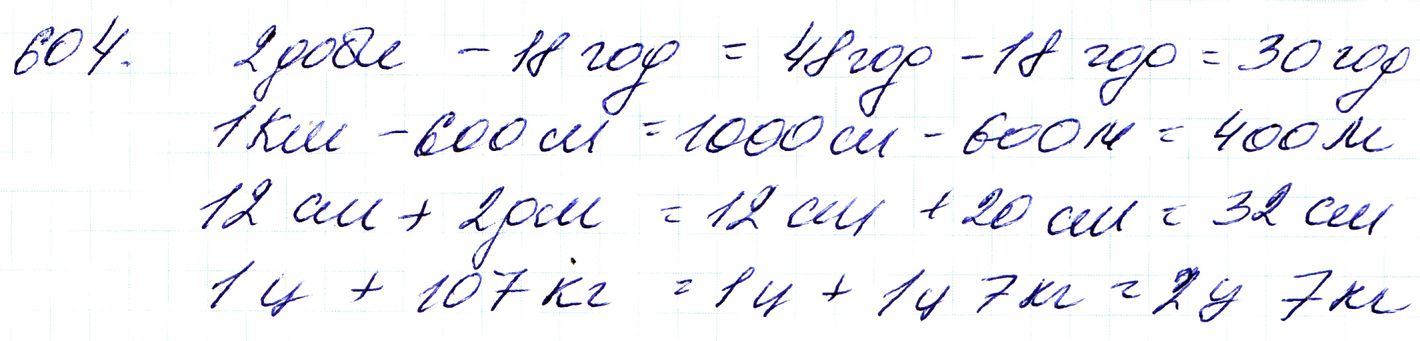 604. 2доби - 18 год = 48год - 18 год = 30 год
1км - 600 м = 1000 м - 600м = 400 м
12 см + 2дм = 12 см + 20 см = 32 см
1ц + 107 кг = 1ц + 1ц 7кг = 2ц 7кг